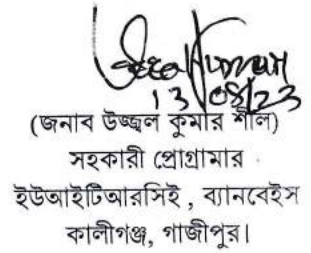 13/08/23
(জনাব উজ্জ্বল কুমার শীল)
সহকারী প্রোগ্রামার
ইউআইটিআরসিই , ব্যানবেইস
কালীগঞ্জ, গাজীপুর।